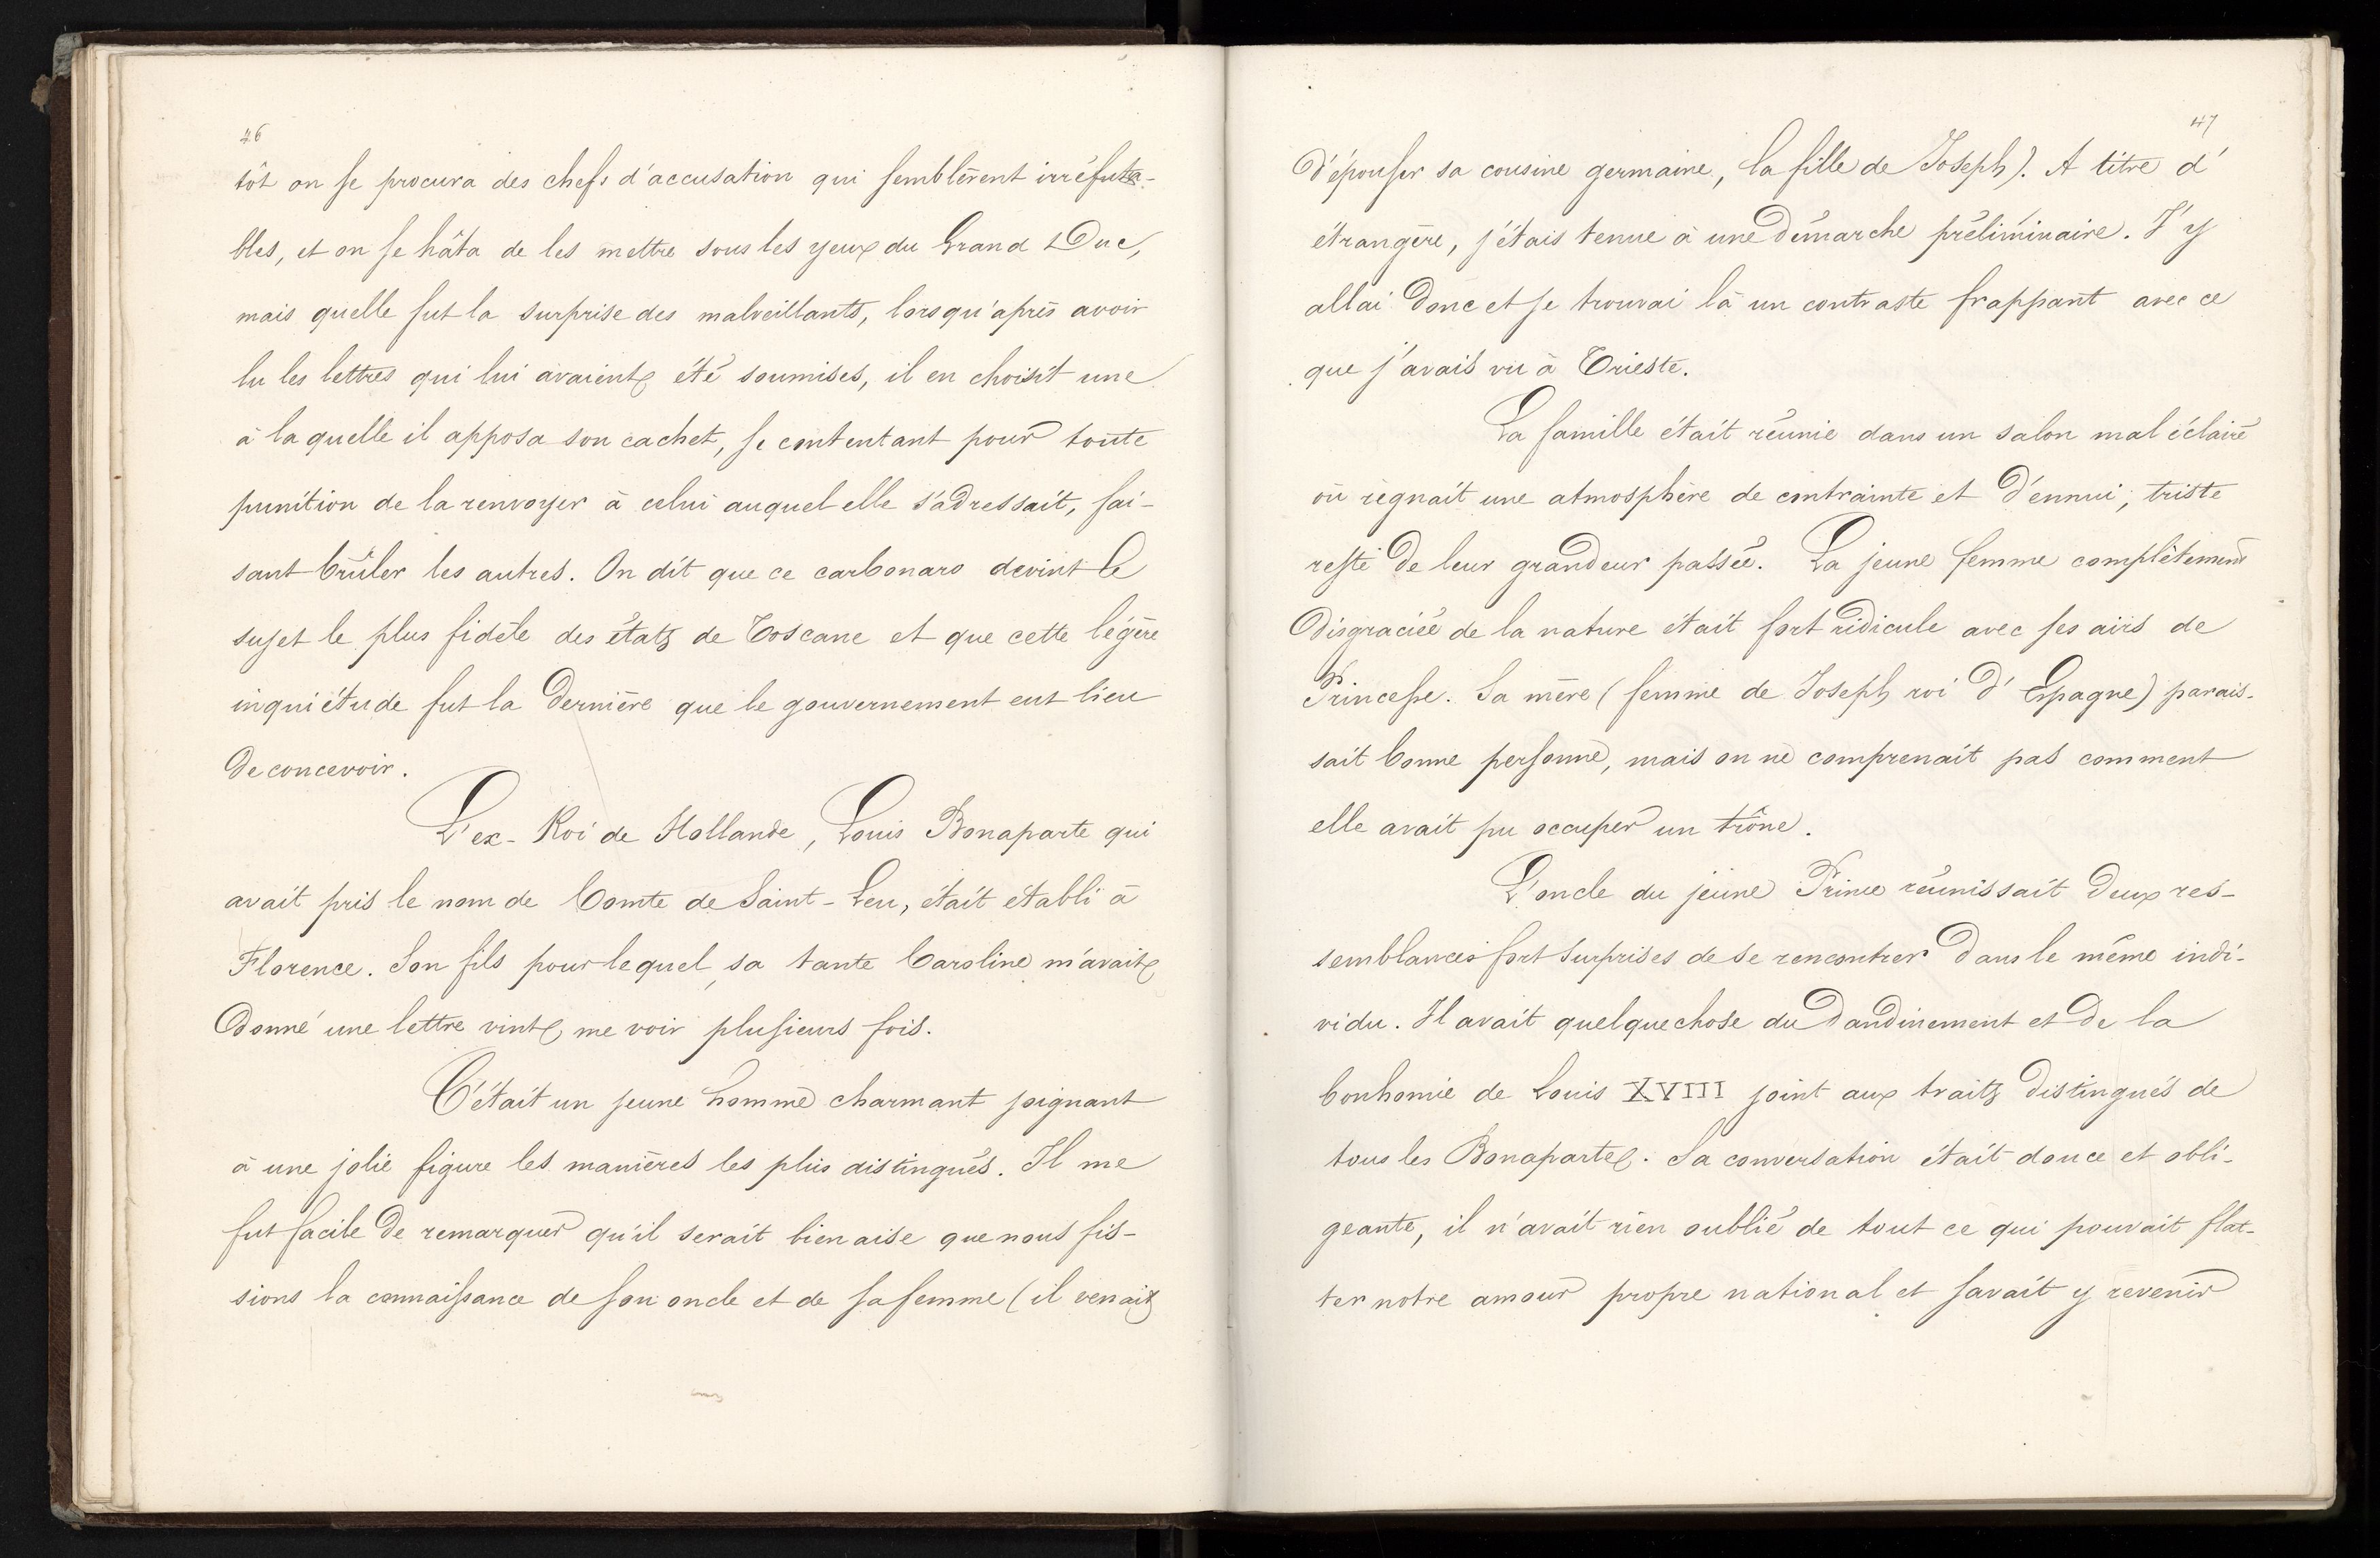 46
tôt on se procura des chefs d'accusation qui semblèrent irréfuta-
bles, et on se hâta de les mettre sous les yeux du Grand Duc,
mais quelle fut la surprise des malveillants, lorsqu'après avoir
lu les lettres qui lui avaient été soumises, il en choisit une
à laquelle il apposa son cachet, se contentant pour toute
punition de la renvoyer à celui auquel elle s'adressait, fai-
sant brûler les autres. On dit que ce carbonaro devint le
sujet le plus fidèle des états de Toscane et que cette légère
inquiétude fut la dernière que le gouvernement eut lieu
de concevoir.
L'ex-Roi de Hollande, Louis Bonaparte qui
avait pris le nom de Comte de Saint-Leu, était établi à
Florence. Son fils pour lequel, sa tante Caroline m'avait
donné une lettre vint me voir plusieurs fois.
C'était un jeune homme charmant joignant
à une jolie figure les manières les plus distingués. Il me
fut facile de remarquer qu'il serait bien aise que nous fis-
sions la connaissance de son oncle et de sa femme (il venait
47
d'épouser sa cousine germaine, la fille de Joseph). A titre d'
étrangère, j'étais tenue à une démarche préliminaire. J'y
allai donc et je trouvai là un contraste frappant avec ce
que j'avais vu à Trieste.
La famille était réunie dans un salon mal éclairé
où règnait une atmosphère de contrainte et d'ennui, triste
reste de leur grandeur passée. La jeune femme complètement
disgraciée de la nature était fort ridicule avec ses airs de
Princesse. Sa mère (femme de Joseph roi d'Espagne) parais-
sait bonne personne, mais on ne comprenait pas comment
elle avait pu occuper un trône.
L'oncle du jeune Prince réunissait deux res-
semblances fort surprises de se rencontrer dans le même indi-
vidu. Il avait quelque chose du dandinement et de la
bonhomie de Louis XVIII joint aux traits distingués de
tous les Bonaparte. Sa conversation était douce et obli-
geante, il n'avait rien oublié de tout ce qui pouvait flat-
ter notre amour propre national et savait y revenir